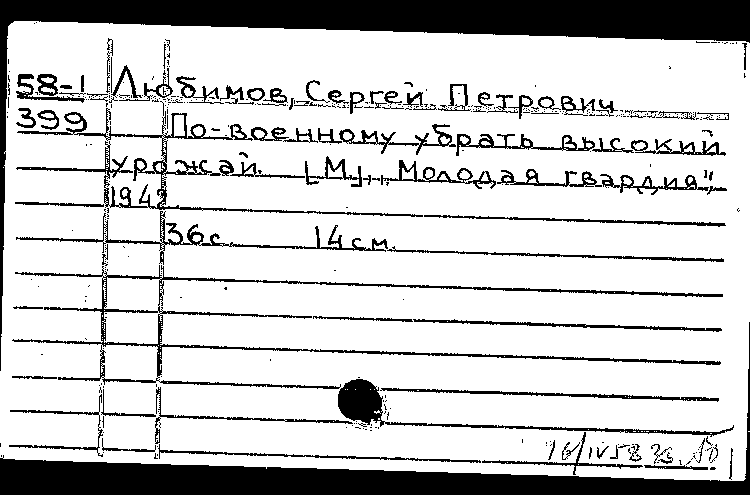 58-1 Любимов, Сергей Петрович
399 По-военному убрать высокий
урожай. [М], „Молодая гвардия",
1942.
36с. 14см.
16/IV 58